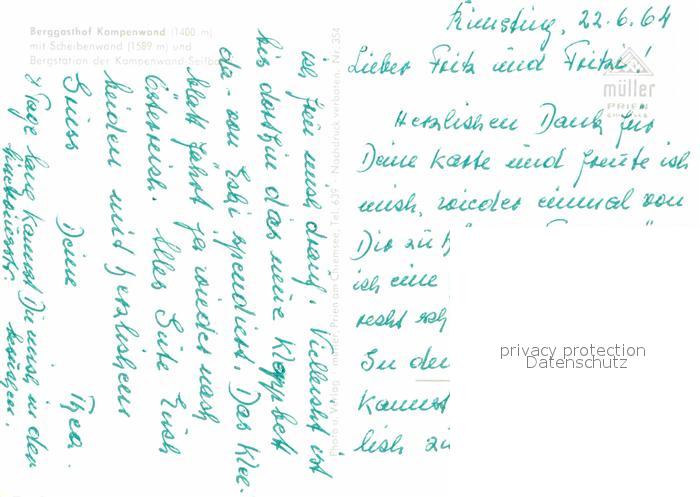 Berggasthof Kampenwand (1400 m)
mit Scheibenwand (1589 m) und
Bergstation der Kampenwand-Seilba
Rimsting, 22.6.64
Lieber Fritz und Fritzi!
müller
PRIEN
CHIEMSEE
Herzlichen Dank für
Deine Karte und freute ich
mich, wieder einmal von
Dir zu h
ich eine
recht sch
In den
kannst
lich zu
ich freu mich drauf. Vielleicht ist
bis dorthin das neue Klappbett
da - von Eski spendiert. Das Klee-
blatt fährt ja wieder nach
Österreich. Alles Gute Euch
beiden und herzlichen
Gruss Deine Thea.
4 Tage lang kannst Du mich in den
hinkommst.
Photo u. Verlag F. müller, Prien am Chiemsee, Tel. 639 Nachdruck verboten. Nr. 354
privacy protection
Datenschutz